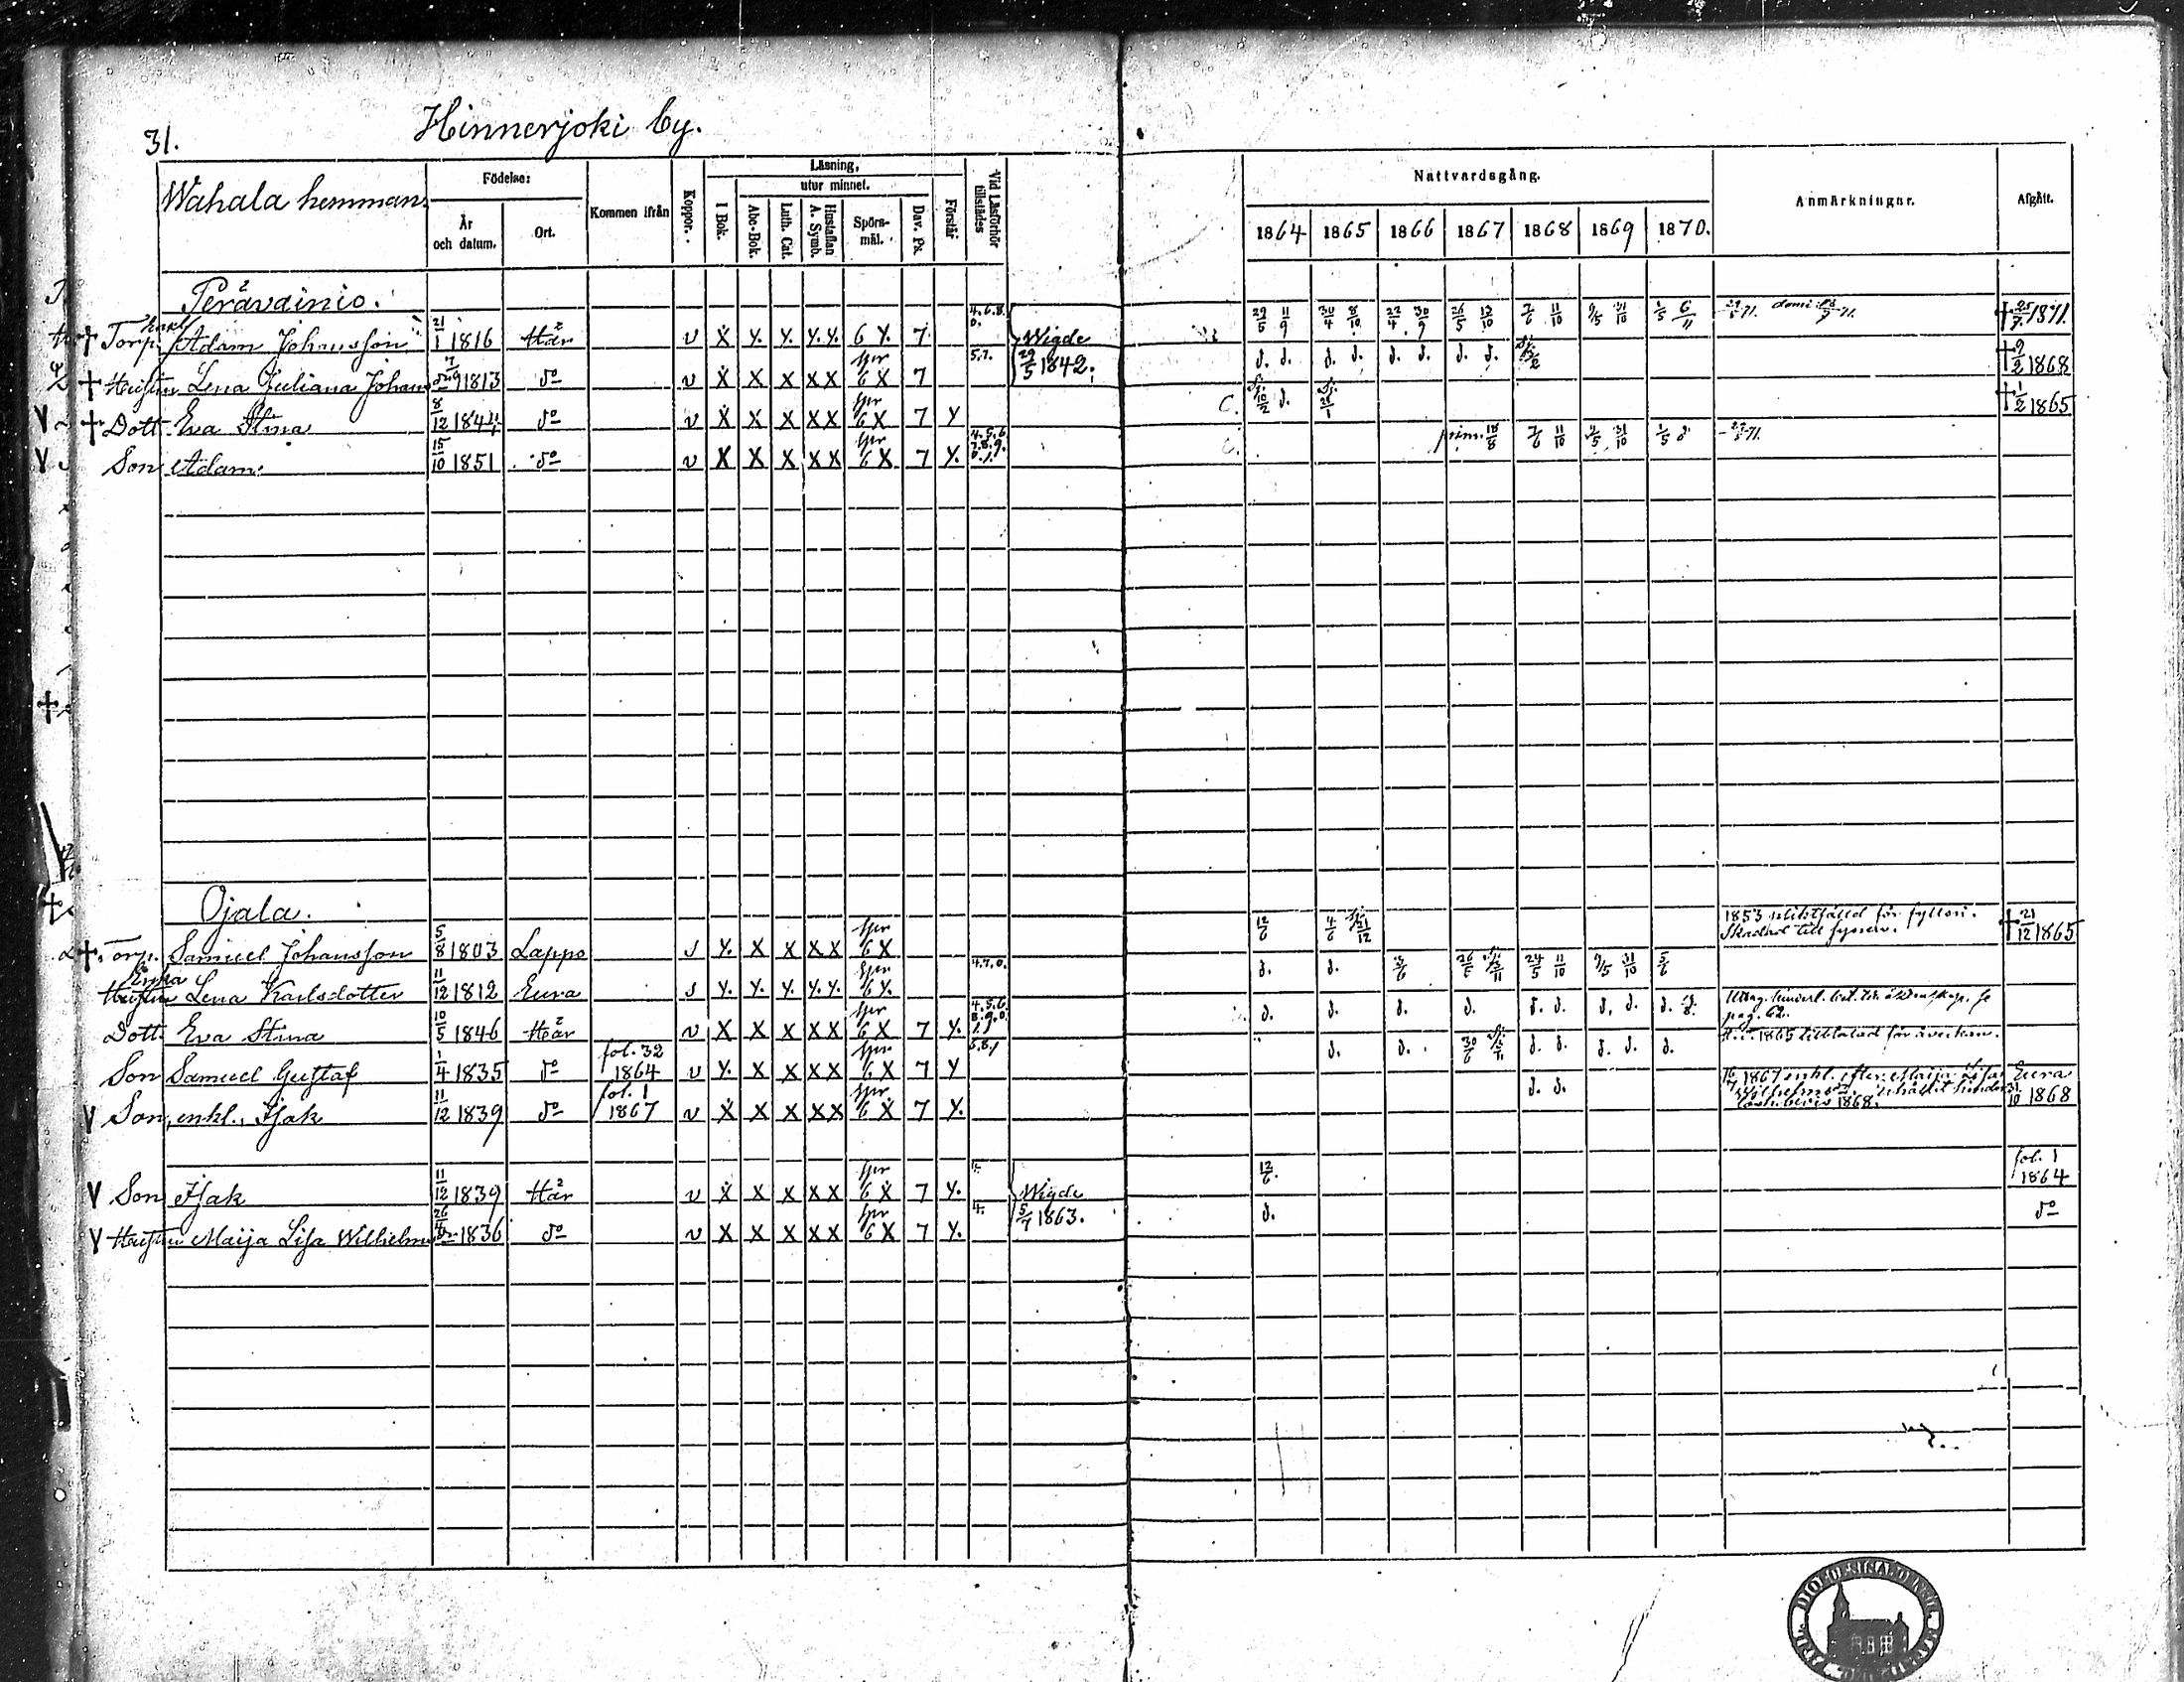 31.
Hinnerjoki by.
Wahala hemman.
Födelse:
År och datum.
Ort.
Kommen ifrån
Koppor.
Läsning,
utur minnet.
I Bok.
Abc-Bok.
Luth. Cat.
Hustaflan A. Symb.
Spörsmål.
Dav. Ps.
Förstår
Vid Läsförhör tillstädes
Nattvardsgång.
1864 1865 1866 1867 1868 1869 1870.
Anmärkningar.
Afgått.
Perävainio.
† Torp. enkl. Adam Johansson 21/1 1816 Här v X Y. Y. Y.Y. 6 Y. 7. 4.6.8.0. Wigde 29/5 1842. 29/5 11/9 30/4 8/10 22/4 30/9 26/5 13/10 7/6 11/10 9/5 31/10 1/5 6/11 † 25/7 1871.
† Hustrun Lena Juliana Johans 1813 do v X X X XX 6 X 7 5.7. d. d. d. d. d. d. d. d. † 9/2 1868
V † Dott. Eva Stina 8/12 1844 do v X X X XX 6 X 7 Y C. 10/2 d. † 1/2 1865
V Son Adam. 15/10 1851 do v X X X XX 6 X 7 Y. 4.5.6 7.8.9. 0.1. prim. 18/8 7/6 11/10 9/5 31/10 1/5 d
Ojala.
† Torp. Samuel Johansson 5/8 1803 Lappo s Y. X X XX 6 X 12/6 4/6 21/12 1853 pliktfälld för fylleri. † 21/12 1865
Enka Hustrun Lena Karlsdotter 11/12 1812 Eura s Y. Y. Y. Y.Y. 6 Y. 4.7.0. d. d. 24/5 11/10 9/5 31/10 5/6
Dott. Eva Stina 10/5 1846 Här v X X X XX 6 X 7 Y. 4.5.6 8.9.0. d. d. d. d. d. d. d. d. d. pag. 62.
Son Samuel Gustaf 1/4 1835 do fol. 32 1864 v Y. X X XX 6 X 7 Y 5.8.1 d. d. 30/6 d. d. d. d. d. 1865
V Son, enkl., Isak 11/12 1839 do fol. 1 1867 v X X X XX 6 X 7 Y. d. d. 1867 enkl. efter Maija Lisa Wilhelmsd. 1868. Eura 31/10 1868
V Son Isak 11/12 1839 Här v X X X XX 6 X 7 Y. Wigde 5/7 1863. 12/6. fol. 1 1864
V Hustrun Maija Lisa Wilhelms 26/4 1836 do v X X X XX 6 X 7 Y. 4. d. do